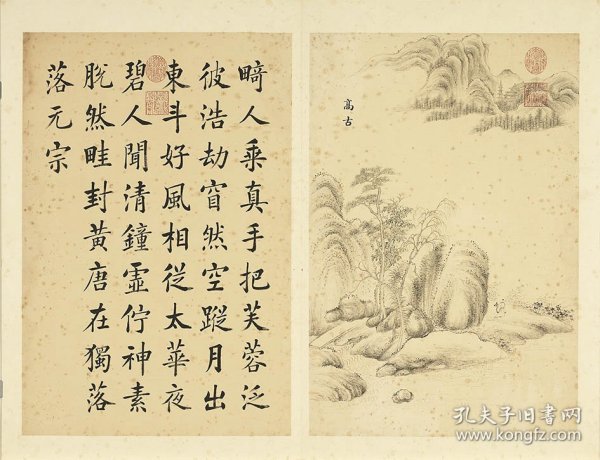 畸人乘真手把芙蓉泛
彼浩劫窅然空蹤月出
東斗好風相從太華夜
碧人聞清鐘虛佇神素
脫然畦封黃唐在獨落
落元宗
高古
孔夫子旧书网
www.kongfz.com